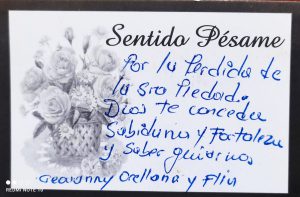 Sentido Pésame
Por la Perdida de
la Sra Piedad.
Dios te conceda
Sabiduria y Fortaleza
y Saber guiarnos
Geovanny Orellana y Flia
REDMI NOTE 10